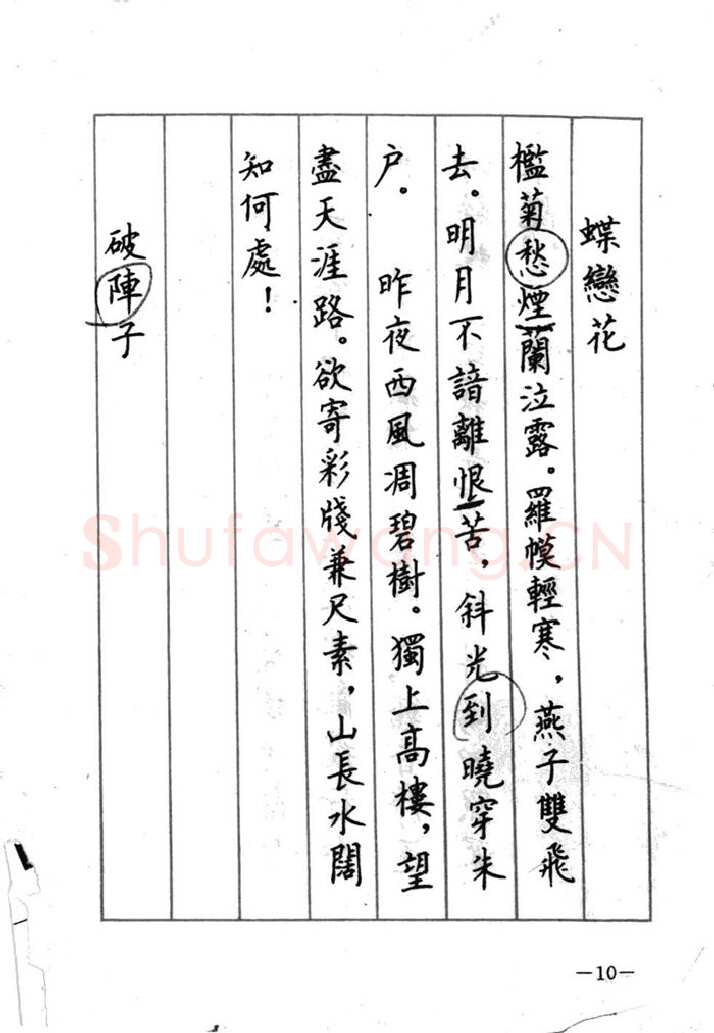 蝶戀花
檻菊愁煙蘭泣露。羅幙輕寒，燕子雙飛
去。明月不諳離恨苦，斜光到曉穿朱
户。 昨夜西風凋碧樹。獨上高樓，望
盡天涯路。欲寄彩牋兼尺素，山長水闊
知何處！
破陣子
Shufawang.CN
—10—